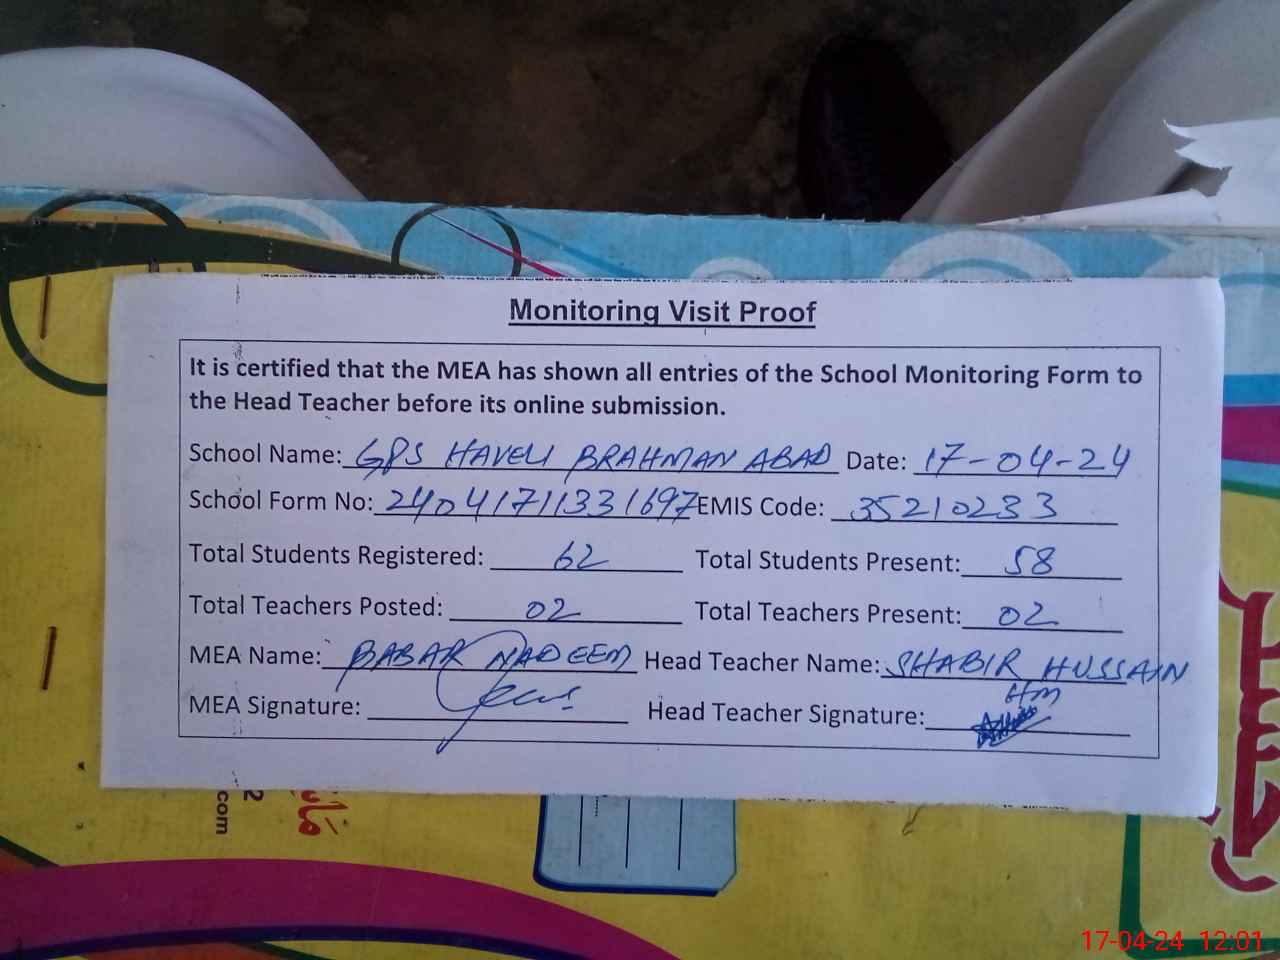 Monitoring Visit Proof
It is certified that the MEA has shown all entries of the School Monitoring Form to
the Head Teacher before its online submission.
School Name: GPS HAVELI BRAHMAN ABAD Date: 17-04-24
School Form No: 24041711331697 EMIS Code: 35210233
Total Students Registered: 62 Total Students Present: 58
Total Teachers Posted: 02 Total Teachers Present: 02
MEA Name: BABAR NADEEM Head Teacher Name: SHABIR HUSSAIN
MEA Signature: Head Teacher Signature: HM
com
17-04-24 12:01